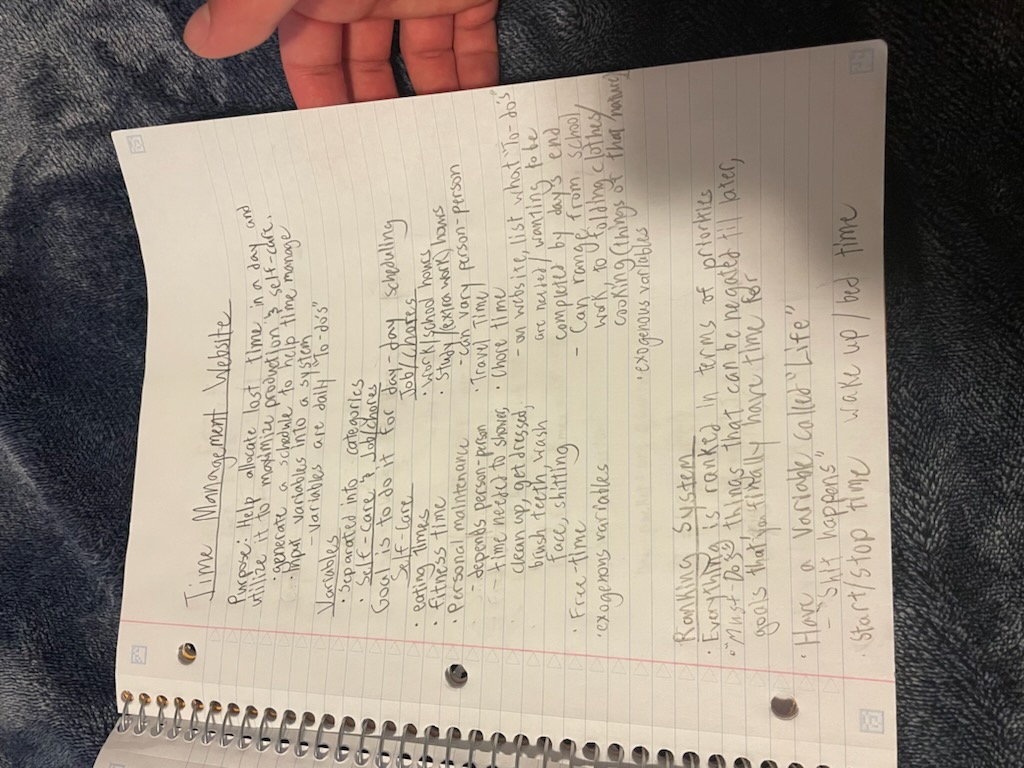 Time Management Website
Purpose: Help allocate lost time in a day and
utilize it to maximize production & self-care.
• generate a schedule to help time manage
• Input variables into a system
- variables are daily "To-do's"
Variables
• Separated into categories
• Self-Care & Job/chores
Goal is to do it for day-day scheduling
Self-Care
• eating times
• fitness time
• Personal maintenance
- depends person-person
- time needed to shower,
clean up, get dressed,
brush teeth, wash
face, shitting
• Free-time
• exogenous variables
Job/Chores
• Work/school hours
• Study/(extra work) hours
- can vary person-person
• Travel Time
• Chore time
- on website, list what "To-do's"
are needed/wanting to be
completed by day's end
- Can range from school
work, to folding clothes/
cooking (things of that nature)
• exogenous variables
Ranking System
• Everything is ranked in terms of priorities
• "Must-Do's", things that can be negated til later,
goals that you finally have time for
• Have a variable called "Life"
- "Shit happens"
• Start/stop time wake up / bed time